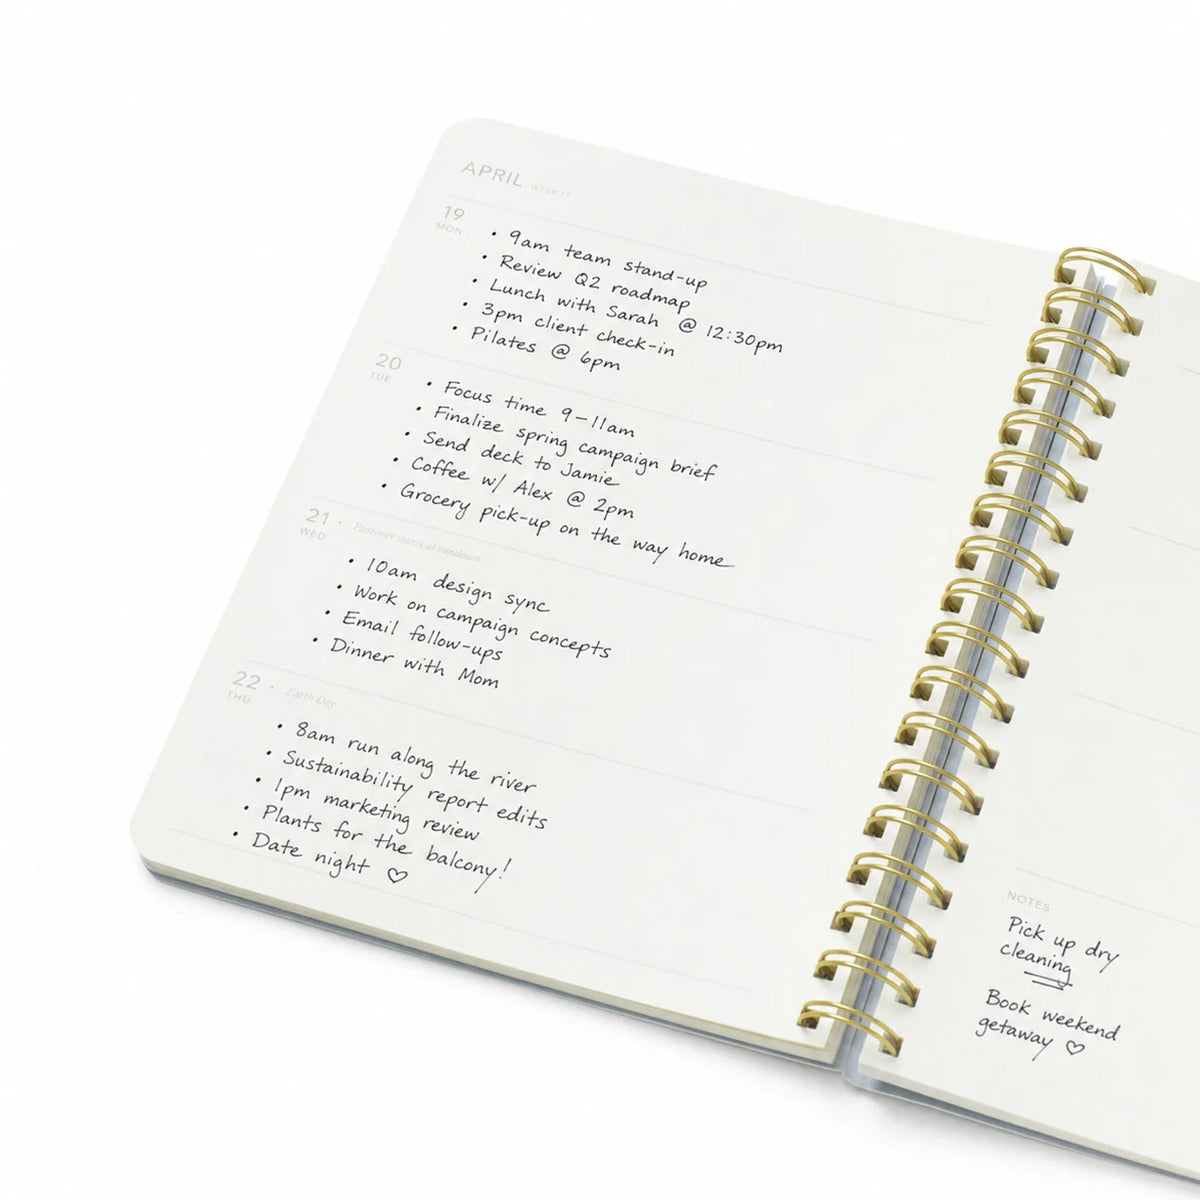 APRIL WEEK 17
19
MON
• 9am team stand-up
• Review Q2 roadmap
• Lunch with Sarah @ 12:30pm
• 3pm client check-in
• Pilates @ 6pm
20
TUE
• Focus time 9-11am
• Finalize spring campaign brief
• Send deck to Jamie
• Coffee w/ Alex @ 2pm
• Grocery pick-up on the way home
21 • Passover starts at sundown
WED
• 10am design sync
• Work on campaign concepts
• Email follow-ups
• Dinner with Mom
22 • Earth Day
THU
• 8am run along the river
• Sustainability report edits
• 1pm marketing review
• Plants for the balcony!
• Date night ♡
NOTES
Pick up dry
cleaning
Book weekend
getaway ♡